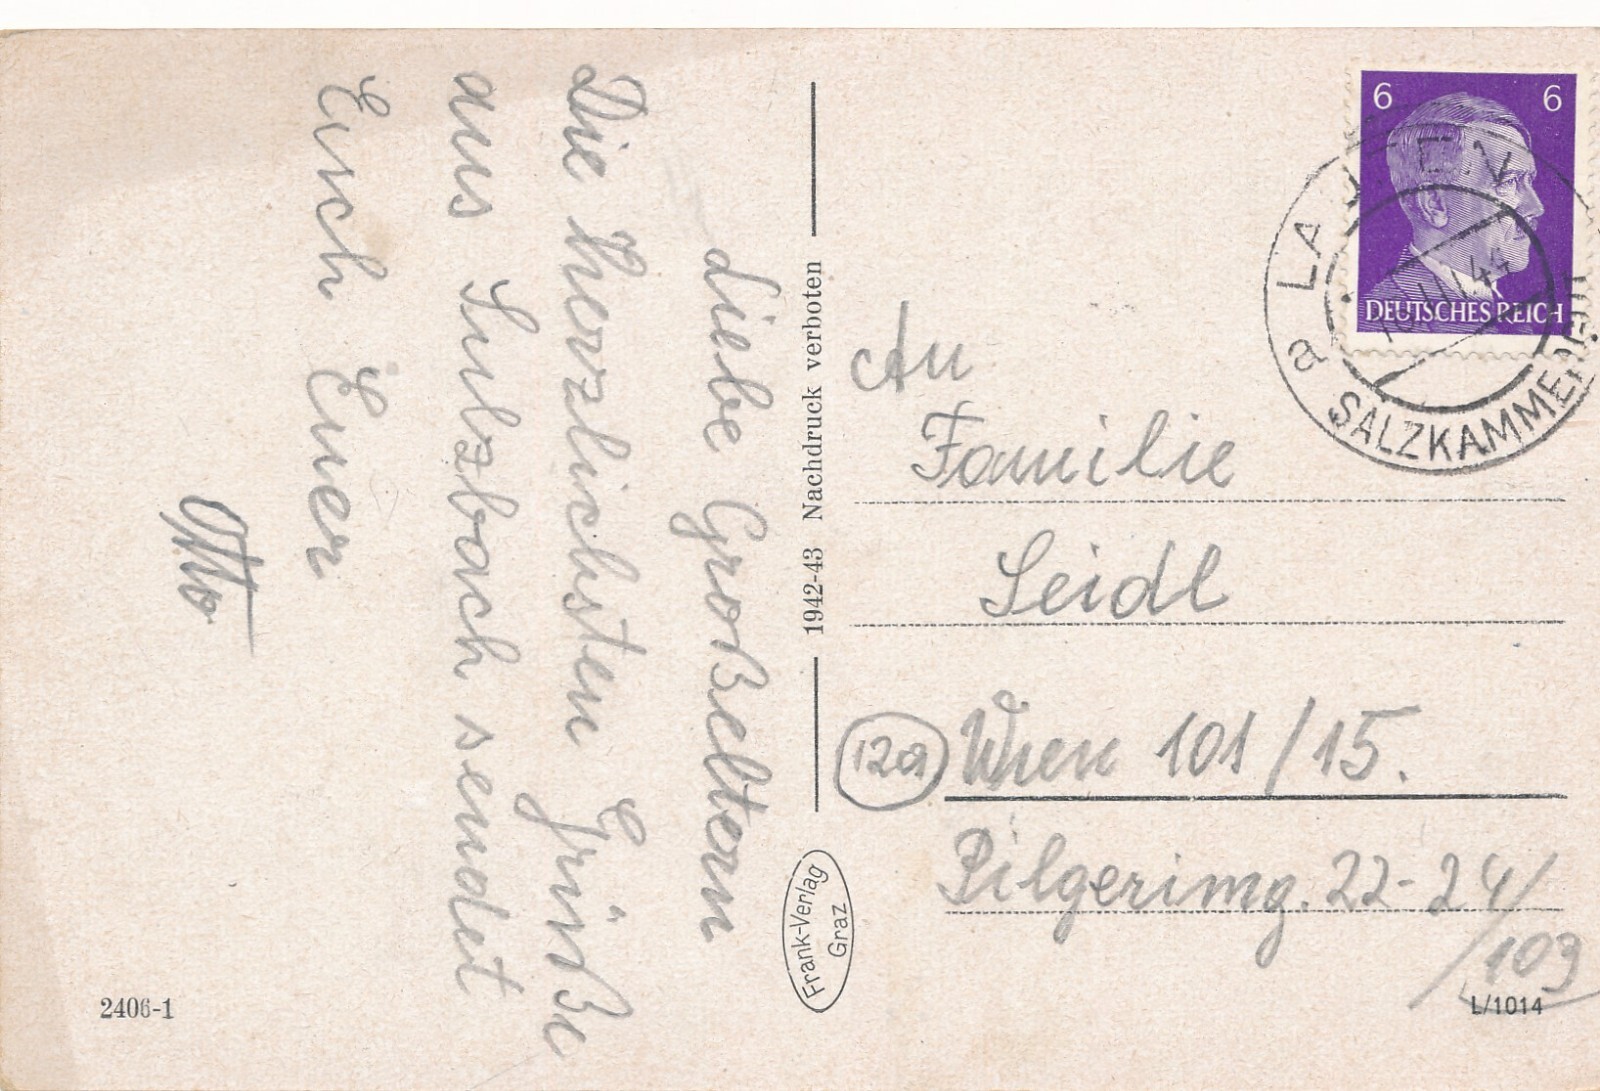 Liebe Großeltern
Die herzlichsten Grüße
aus Sulzbach sendet
Euch Euer
Otto
1942-43 Nachdruck verboten
Frank-Verlag
Graz
2406-1
6 6
DEUTSCHES REICH
a LAUFEN
SALZKAMMERGUT
44
An
Familie
Seidl
12a Wien 101/15.
Pilgerimg. 22-24/
/103
L/1014